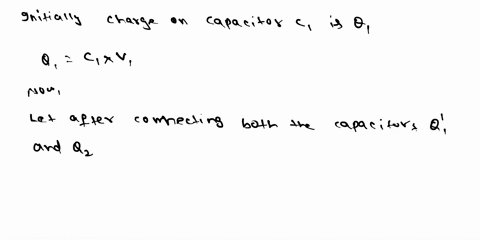 Initially charge on capacitor C₁ is Q₁
Q₁ = C₁ × V₁
Now,
Let after connecting both the capacitors Q₁'
and Q₂